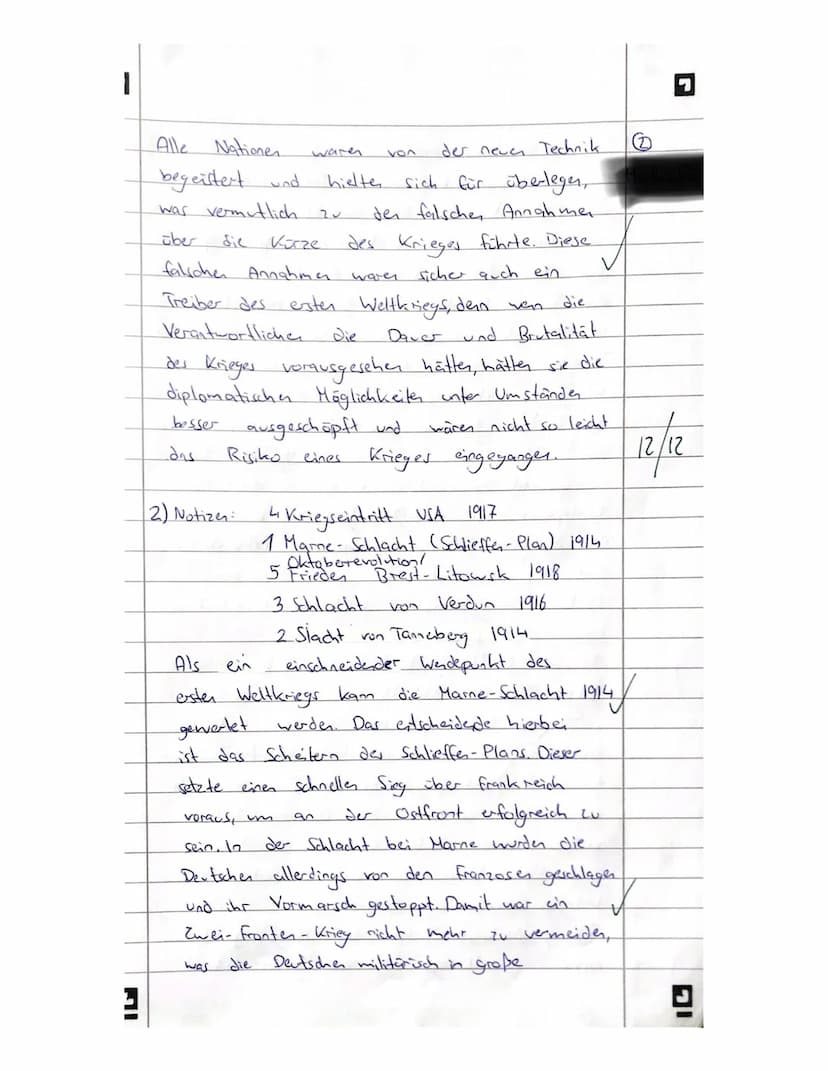 Alle Nationen waren von der neuen Technik
②
begeistert und hielten sich für überlegen,
was vermutlich zu den falschen Annahmen
über die Kürze des Krieges führte. Diese
falschen Annahmen waren sicher auch ein
Treiber des ersten Weltkriegs, denn wen die
Verantwortlichen die Dauer und Brutalität
des Krieges vorausgesehen hätten, hätten sie die
diplomatischen Möglichkeiten unter Umständen
besser ausgeschöpft und wären nicht so leicht
das Risiko eines Krieges eingegangen.
12/12
2) Notizen: 4 Kriegseintritt USA 1917
1 Marne-Schlacht (Schlieffen-Plan) 1914
Oktoberevolution/
5 Frieden Brest-Litowsk 1918
3 Schlacht von Verdun 1916
2 Slacht von Tanneberg 1914
Als ein einschneidender Wendepunkt des
ersten Weltkriegs kann die Marne-Schlacht 1914
gewertet werden. Das entscheidende hierbei
ist das Scheitern des Schlieffen-Plans. Dieser
setzte einen schnellen Sieg über Frankreich
voraus, um an der Ostfront erfolgreich zu
sein. In der Schlacht bei Marne wurden die
Deutschen allerdings von den Franzosen geschlagen
und ihr Vormarsch gestoppt. Damit war ein
Zwei-Fronten-Krieg nicht mehr zu vermeiden,
was die Deutschen militärisch in große